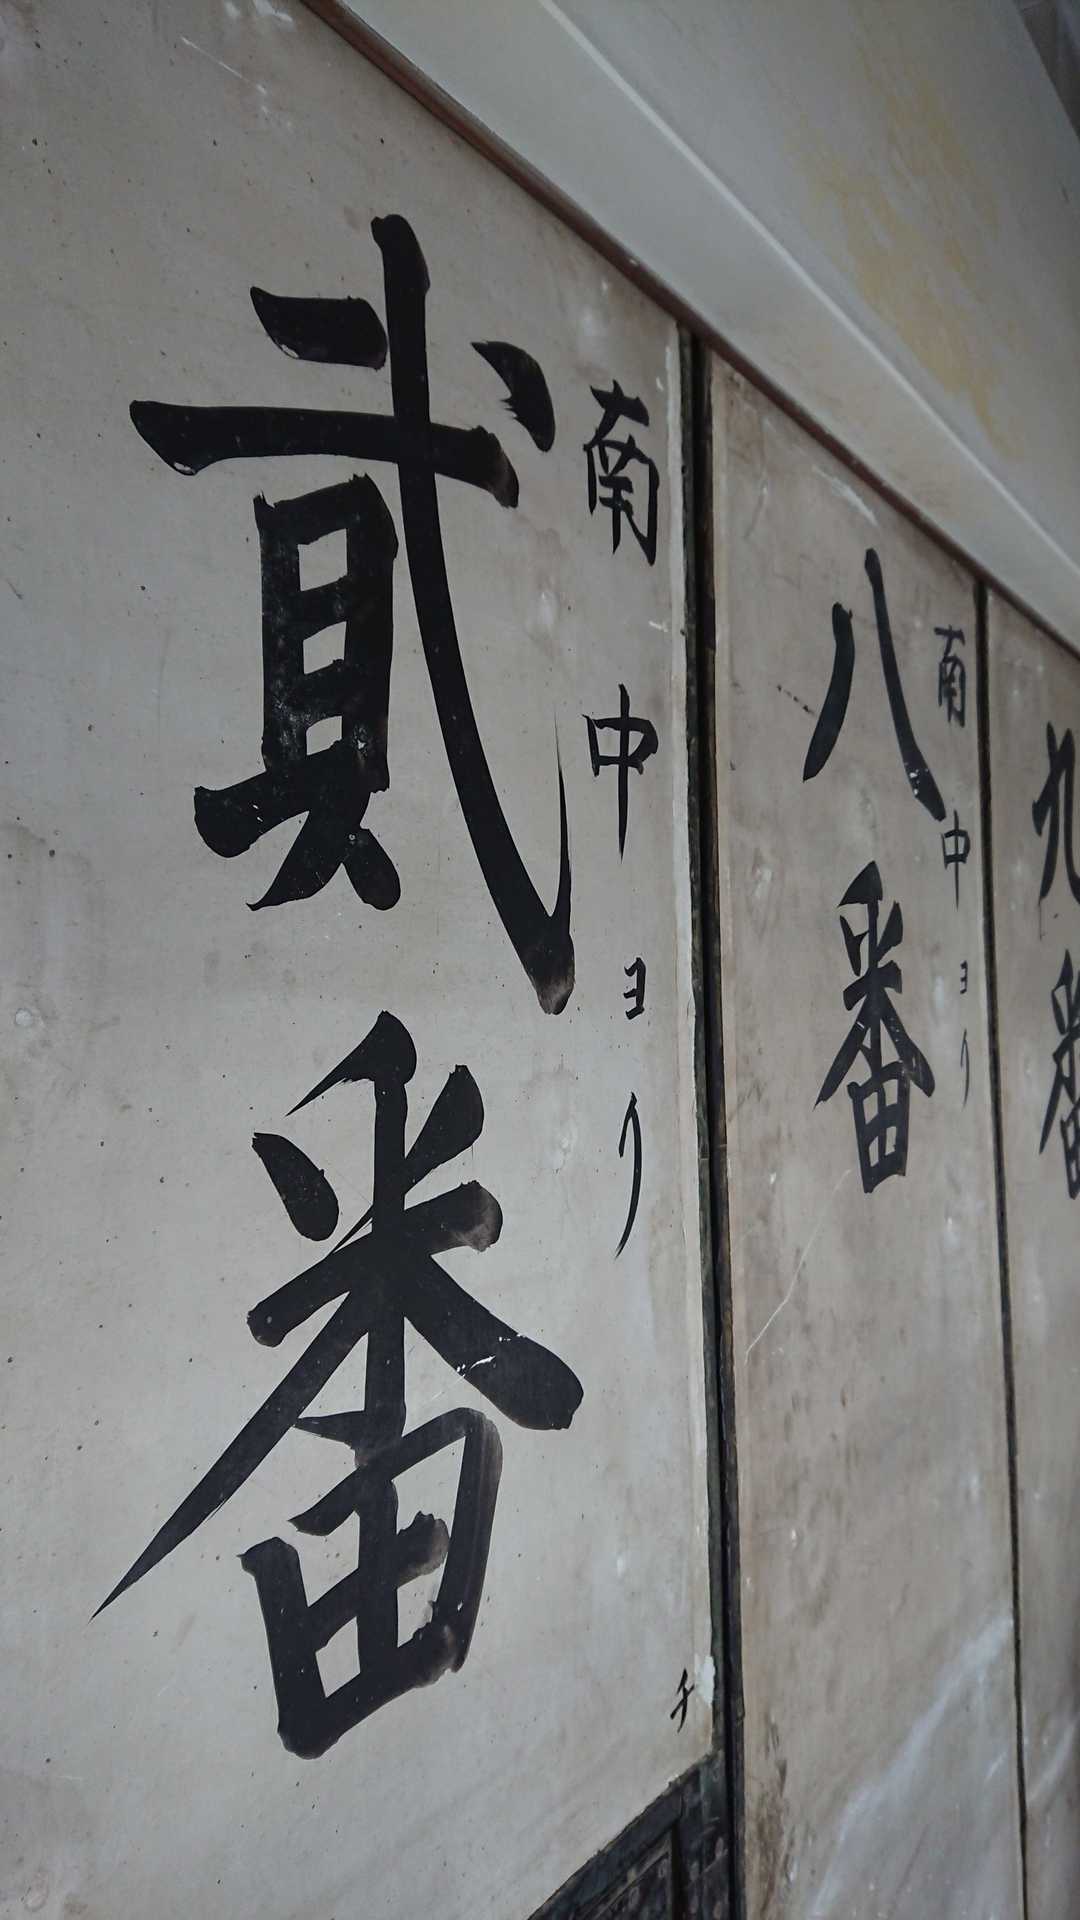 南中ヨリ
貳番
チ
南中ヨリ
八番
九番